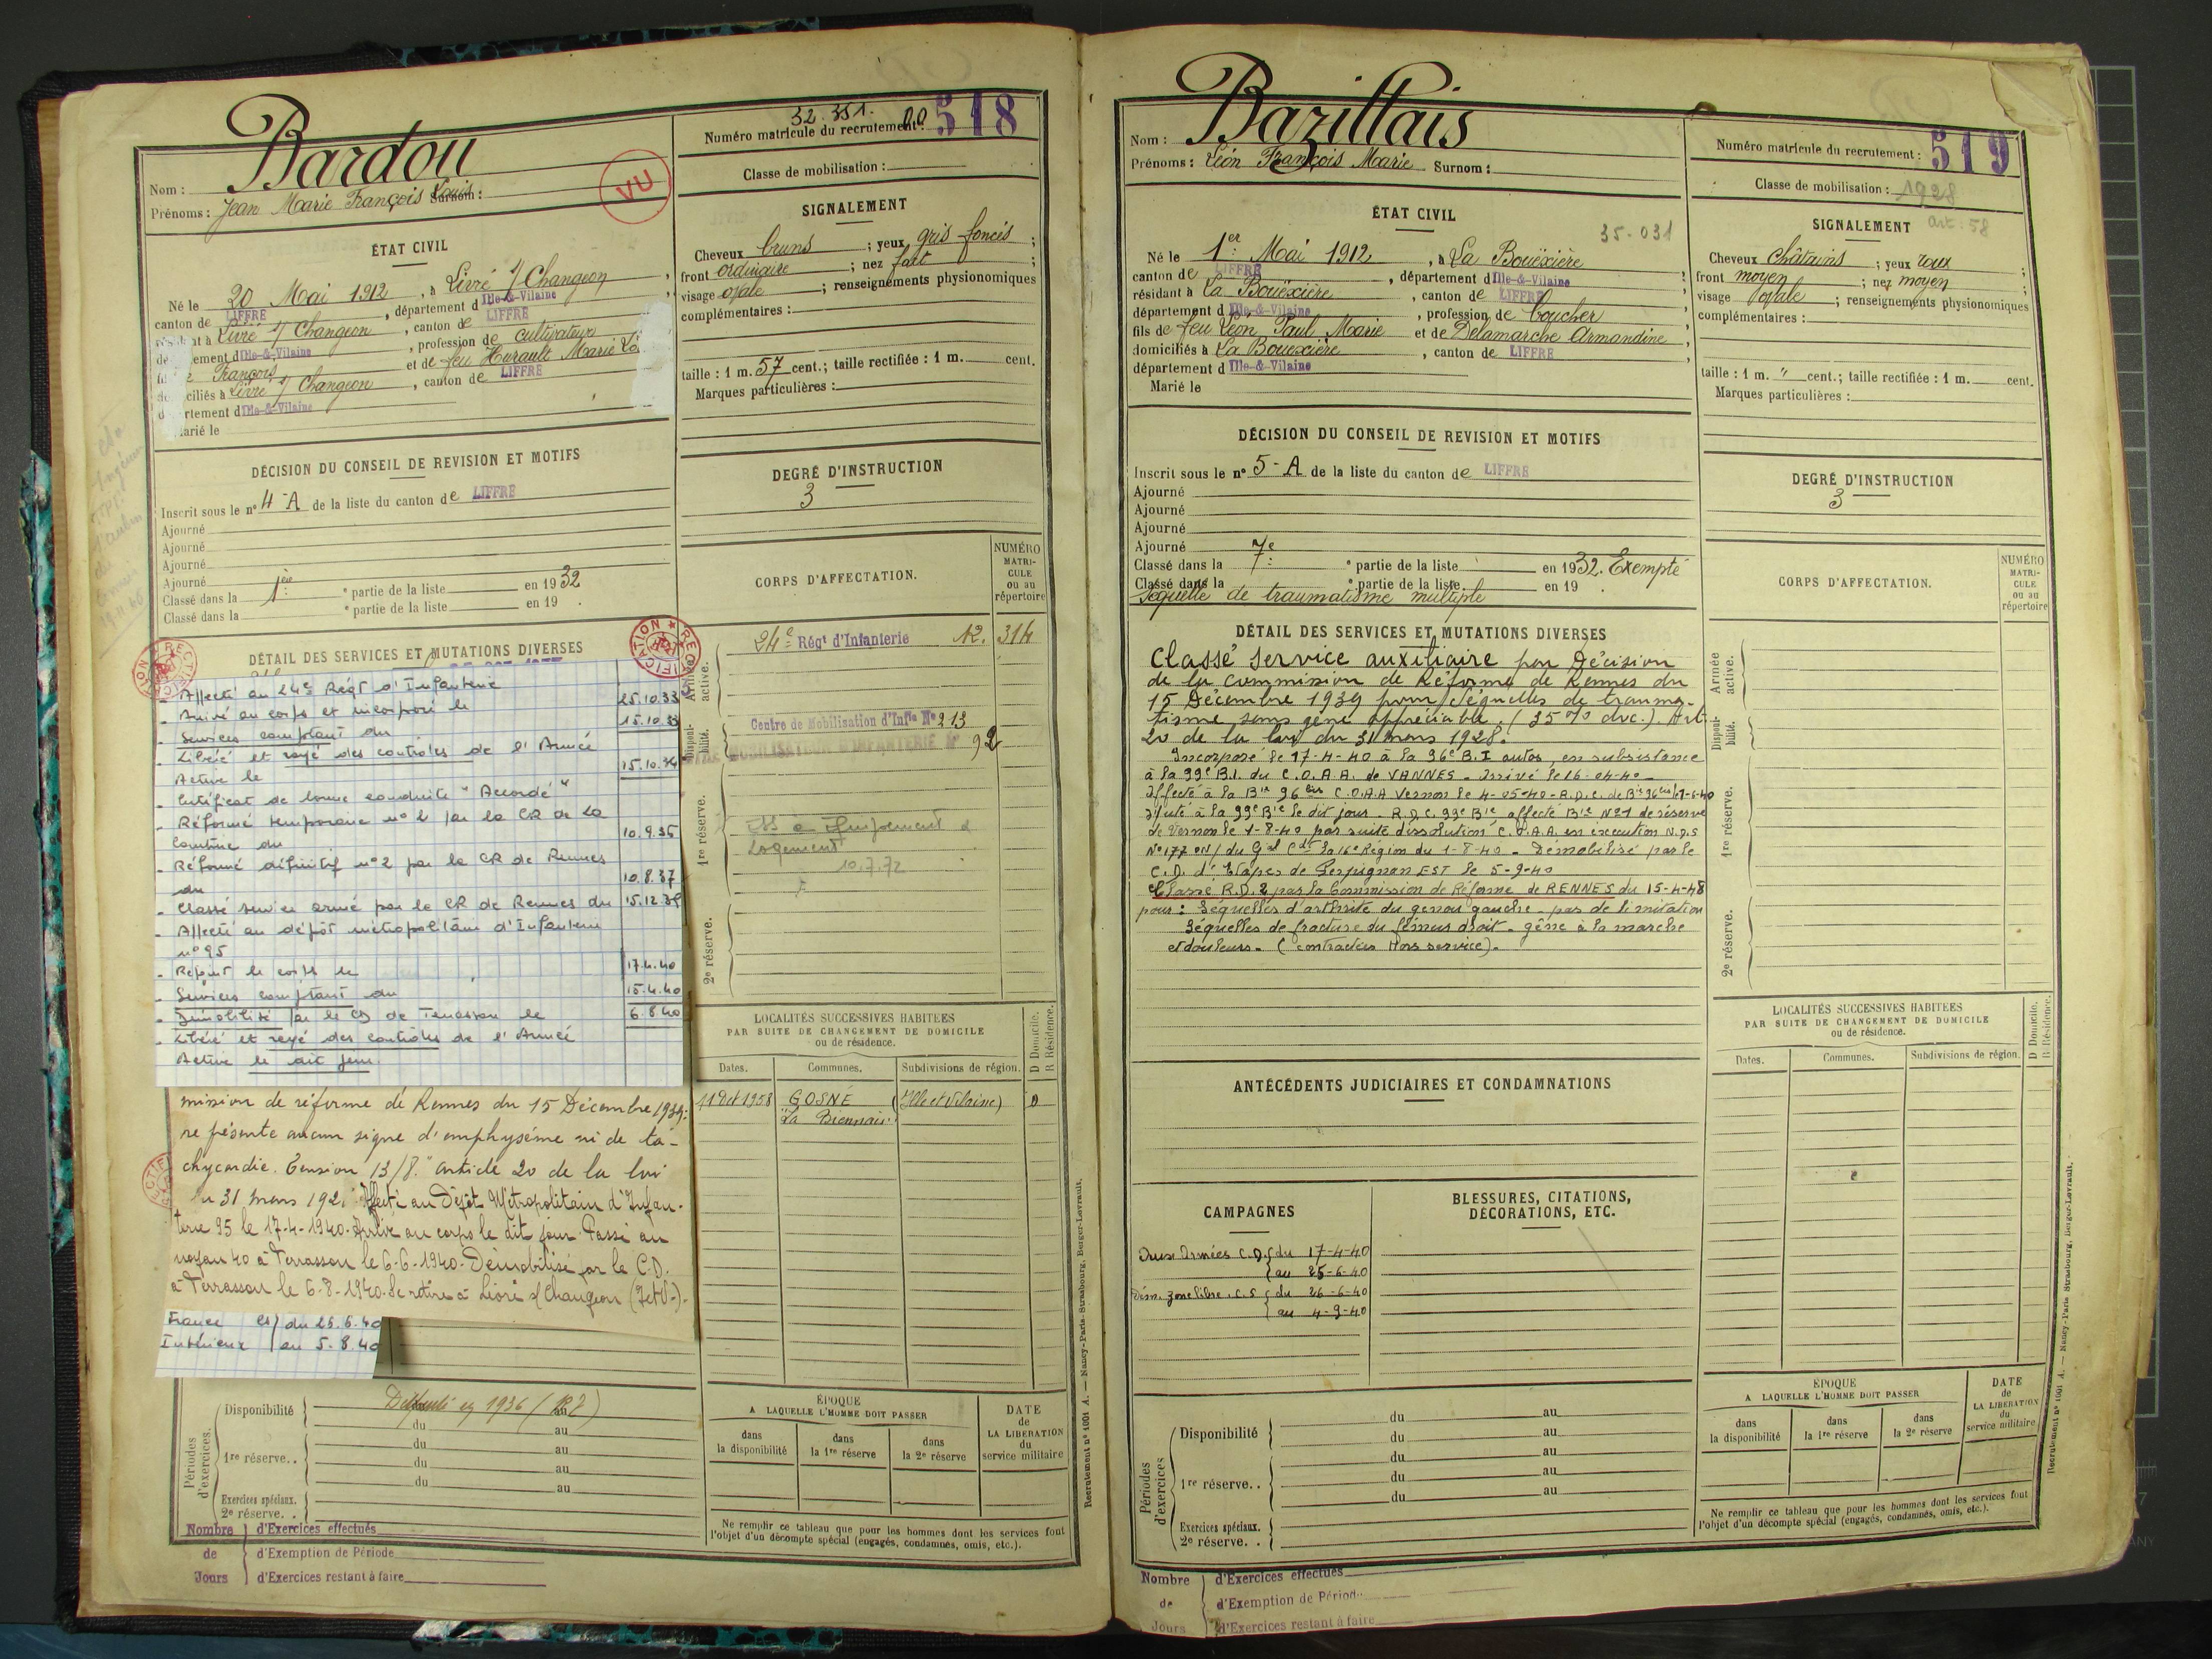 32.351.
Numéro matricule du recrutement : 518
Classe de mobilisation :
Nom : Bardou
Prénoms : Jean Marie François Louis Surnom :
VU
ÉTAT CIVIL
Né le 20 Mai 1912, à Livré s/ Changeon,
canton de LIFFRÉ, département d'Ille-&-Vilaine,
résidant à Livré s/ Changeon, canton de LIFFRÉ
département d'Ille-&-Vilaine, profession de cultivateur
fils de François et de feu Hurault Marie
domiciliés à Livré s/ Changeon, canton de LIFFRÉ
département d'Ille-&-Vilaine
Marié le
SIGNALEMENT
Cheveux bruns ; yeux gris foncés ;
front ordinaire ; nez fort ;
visage ovale ; renseignements physionomiques
complémentaires :
taille : 1 m. 57 cent. ; taille rectifiée : 1 m. cent.
Marques particulières :
DÉCISION DU CONSEIL DE REVISION ET MOTIFS
Inscrit sous le n° 4-A de la liste du canton de LIFFRÉ
Ajourné
Ajourné
Ajourné
Ajourné
Classé dans la 1ère partie de la liste en 1932
Classé dans la partie de la liste en 19 .
DEGRÉ D'INSTRUCTION
3
CORPS D'AFFECTATION.
NUMÉRO
MATRI-
CULE
ou au
répertoire
Armée active.
24e Régt d'Infanterie 12. 314
Disponi-
bilité.
Centre de Mobilisation d'Infie N° 213
MOBILISATION D'INFANTERIE N° 92
1re réserve.
Logement
10.7.72
2e réserve.
DÉTAIL DES SERVICES ET MUTATIONS DIVERSES
RECTIFICATION
- Affecté au 24e Régt d'Infanterie
- Arrivé au corps et incorporé le 25.10.33
- Services comptant du 15.10.33
- Libéré et rayé des contrôles de l'Armée
Active le 15.10.34
- Certificat de bonne conduite "Accordé"
- Réformé temporaire n° 2 par la CR de
du 10.9.36
- Réformé définitif n° 2 par la CR de Rennes
du 10.8.37
- Classé service armé par la CR de Rennes du 15.12.39
- Affecté au dépôt métropolitain d'Infanterie
n° 95
- Rejoint le corps le 17.4.40
- Services comptant du 15.4.40
- Démobilisé par le CD de Terrasson le 6.8.40
- Libéré et rayé des contrôles de l'Armée
Active le dit jour.
mission de réforme de Rennes du 15 Décembre 1939:
ne présente aucun signe d'emphysème ni de ta-
chycardie. Tension 13/8." article 20 de la loi
du 31 mars 192. Affecté au Dépôt Métropolitain d'Infan-
terie 95 le 17-4-1940. Arrivé au corps le dit jour. Passé au
noyau 40 à Terrasson le 6-6-1940. Démobilisé par le C.D.
à Terrasson le 6-8-1940. Se retire à Livré s/ Changeon (I et V.)-
France du 25.6.40
Intérieur au 5.8.40
LOCALITÉS SUCCESSIVES HABITÉES
PAR SUITE DE CHANGEMENT DE DOMICILE
ou de résidence.
D Domicile.
R Résidence.
Dates. Communes. Subdivisions de région.
11 Oct 1958 GOSNÉ (Ille et Vilaine) D
"La Biennais"
Périodes
d'exercices.
Disponibilité en 1936 (R2) au
du au
1re réserve. . du au
du au
du au
Exercices spéciaux.
2e réserve. .
Nombre d'Exercices effectués
de d'Exemption de Période
Jours d'Exercices restant à faire
ÉPOQUE
A LAQUELLE L'HOMME DOIT PASSER
dans la disponibilité
dans la 1re réserve
dans la 2e réserve
DATE
de
LA LIBÉRATION
du
service militaire
Ne remplir ce tableau que pour les hommes dont les services font
l'objet d'un décompte spécial (engagés, condamnés, omis, etc.).
Recrutement n° 1001 A. — Nancy-Paris-Strasbourg, Berger-Levrault.
Nom : Bazillais
Prénoms : Léon François Marie Surnom :
Numéro matricule du recrutement : 519
Classe de mobilisation : 1928
art : 58
ÉTAT CIVIL
35-031
Né le 1er Mai 1912, à La Bouëxière
canton de LIFFRÉ, département d'Ille-&-Vilaine ;
résidant à La Bouëxière, canton de LIFFRÉ
département d'Ille-&-Vilaine, profession de boucher
fils de feu Léon Paul Marie et de Delamarche Armandine,
domiciliés à La Bouëxière, canton de LIFFRÉ,
département d'Ille-&-Vilaine
Marié le
SIGNALEMENT
Cheveux châtains ; yeux roux ;
front moyen ; nez moyen ;
visage ovale ; renseignements physionomiques
complémentaires :
taille : 1 m. " cent. ; taille rectifiée : 1 m. cent.
Marques particulières :
DÉCISION DU CONSEIL DE REVISION ET MOTIFS
Inscrit sous le n° 5-A de la liste du canton de LIFFRÉ
Ajourné
Ajourné
Ajourné
Ajourné
Classé dans la 7e partie de la liste en 1932. Exempté
Classé dans la partie de la liste en 19 .
Séquelle de traumatisme multiple
DEGRÉ D'INSTRUCTION
3
CORPS D'AFFECTATION.
NUMÉRO
MATRI-
CULE
ou au
répertoire
Armée active.
Disponi-
bilité.
1re réserve.
2e réserve.
DÉTAIL DES SERVICES ET MUTATIONS DIVERSES
Classé service auxiliaire par Décision
de la commission de Réforme de Rennes du
15 Décembre 1939 pour Séquelles de trauma-
tisme sans gêne appréciable. (35% dvc.). Art.
20 de la loi du 31 mars 1928.
Incorporé le 17-4-40 à la 96e B.I autos, en subsistance
à la 99e B.I. du C.O.A.A. de VANNES - Arrivé le 16-04-40-
Affecté à la Bie 96 bis C.O.A.A Vernon le 4-05-40 - R.D.C. de Bie 96bis le 7-6-40
Affecté à la 99e Bie le dit jour - R.D.C. 99e Bie affecté Bie N°1 de réserve
de Vernon le 1-8-40 par suite dissolution C.O.A.A. en exécution N.D.S
N°177 ON/ du Gal Cdt la 16e Région du 1-8-40 - Démobilisé par le
C.D. d'Etapes de Perpignan EST le 5-9-40
Classé R.D. 2 par la Commission de Réforme de RENNES du 15-4-48
pour : Séquelles d'arthrite du genou gauche - pas de limitation
Séquelles de fracture du fémur droit - gêne à la marche
et douleurs. (contractées Hors service).
ANTÉCÉDENTS JUDICIAIRES ET CONDAMNATIONS
CAMPAGNES
Aux Armées C.D. du 17-4-40
au 25-6-40
Dém. zone libre . C.S du 26-6-40
au 4-9-40
BLESSURES, CITATIONS,
DÉCORATIONS, ETC.
LOCALITÉS SUCCESSIVES HABITÉES
PAR SUITE DE CHANGEMENT DE DOMICILE
ou de résidence.
D Domicile.
R Résidence.
Dates. Communes. Subdivisions de région.
Périodes
d'exercices
Disponibilité du au
du au
du au
1re réserve. . du au
du au
Exercices spéciaux.
2e réserve. .
Nombre d'Exercices effectués
de d'Exemption de Période
Jours d'Exercices restant à faire
ÉPOQUE
A LAQUELLE L'HOMME DOIT PASSER
dans la disponibilité
dans la 1re réserve
dans la 2e réserve
DATE
de
LA LIBÉRATION
du
service militaire
Ne remplir ce tableau que pour les hommes dont les services font
l'objet d'un décompte spécial (engagés, condamnés, omis, etc.).
Recrutement n° 1001 A. — Nancy-Paris-Strasbourg, Berger-Levrault.